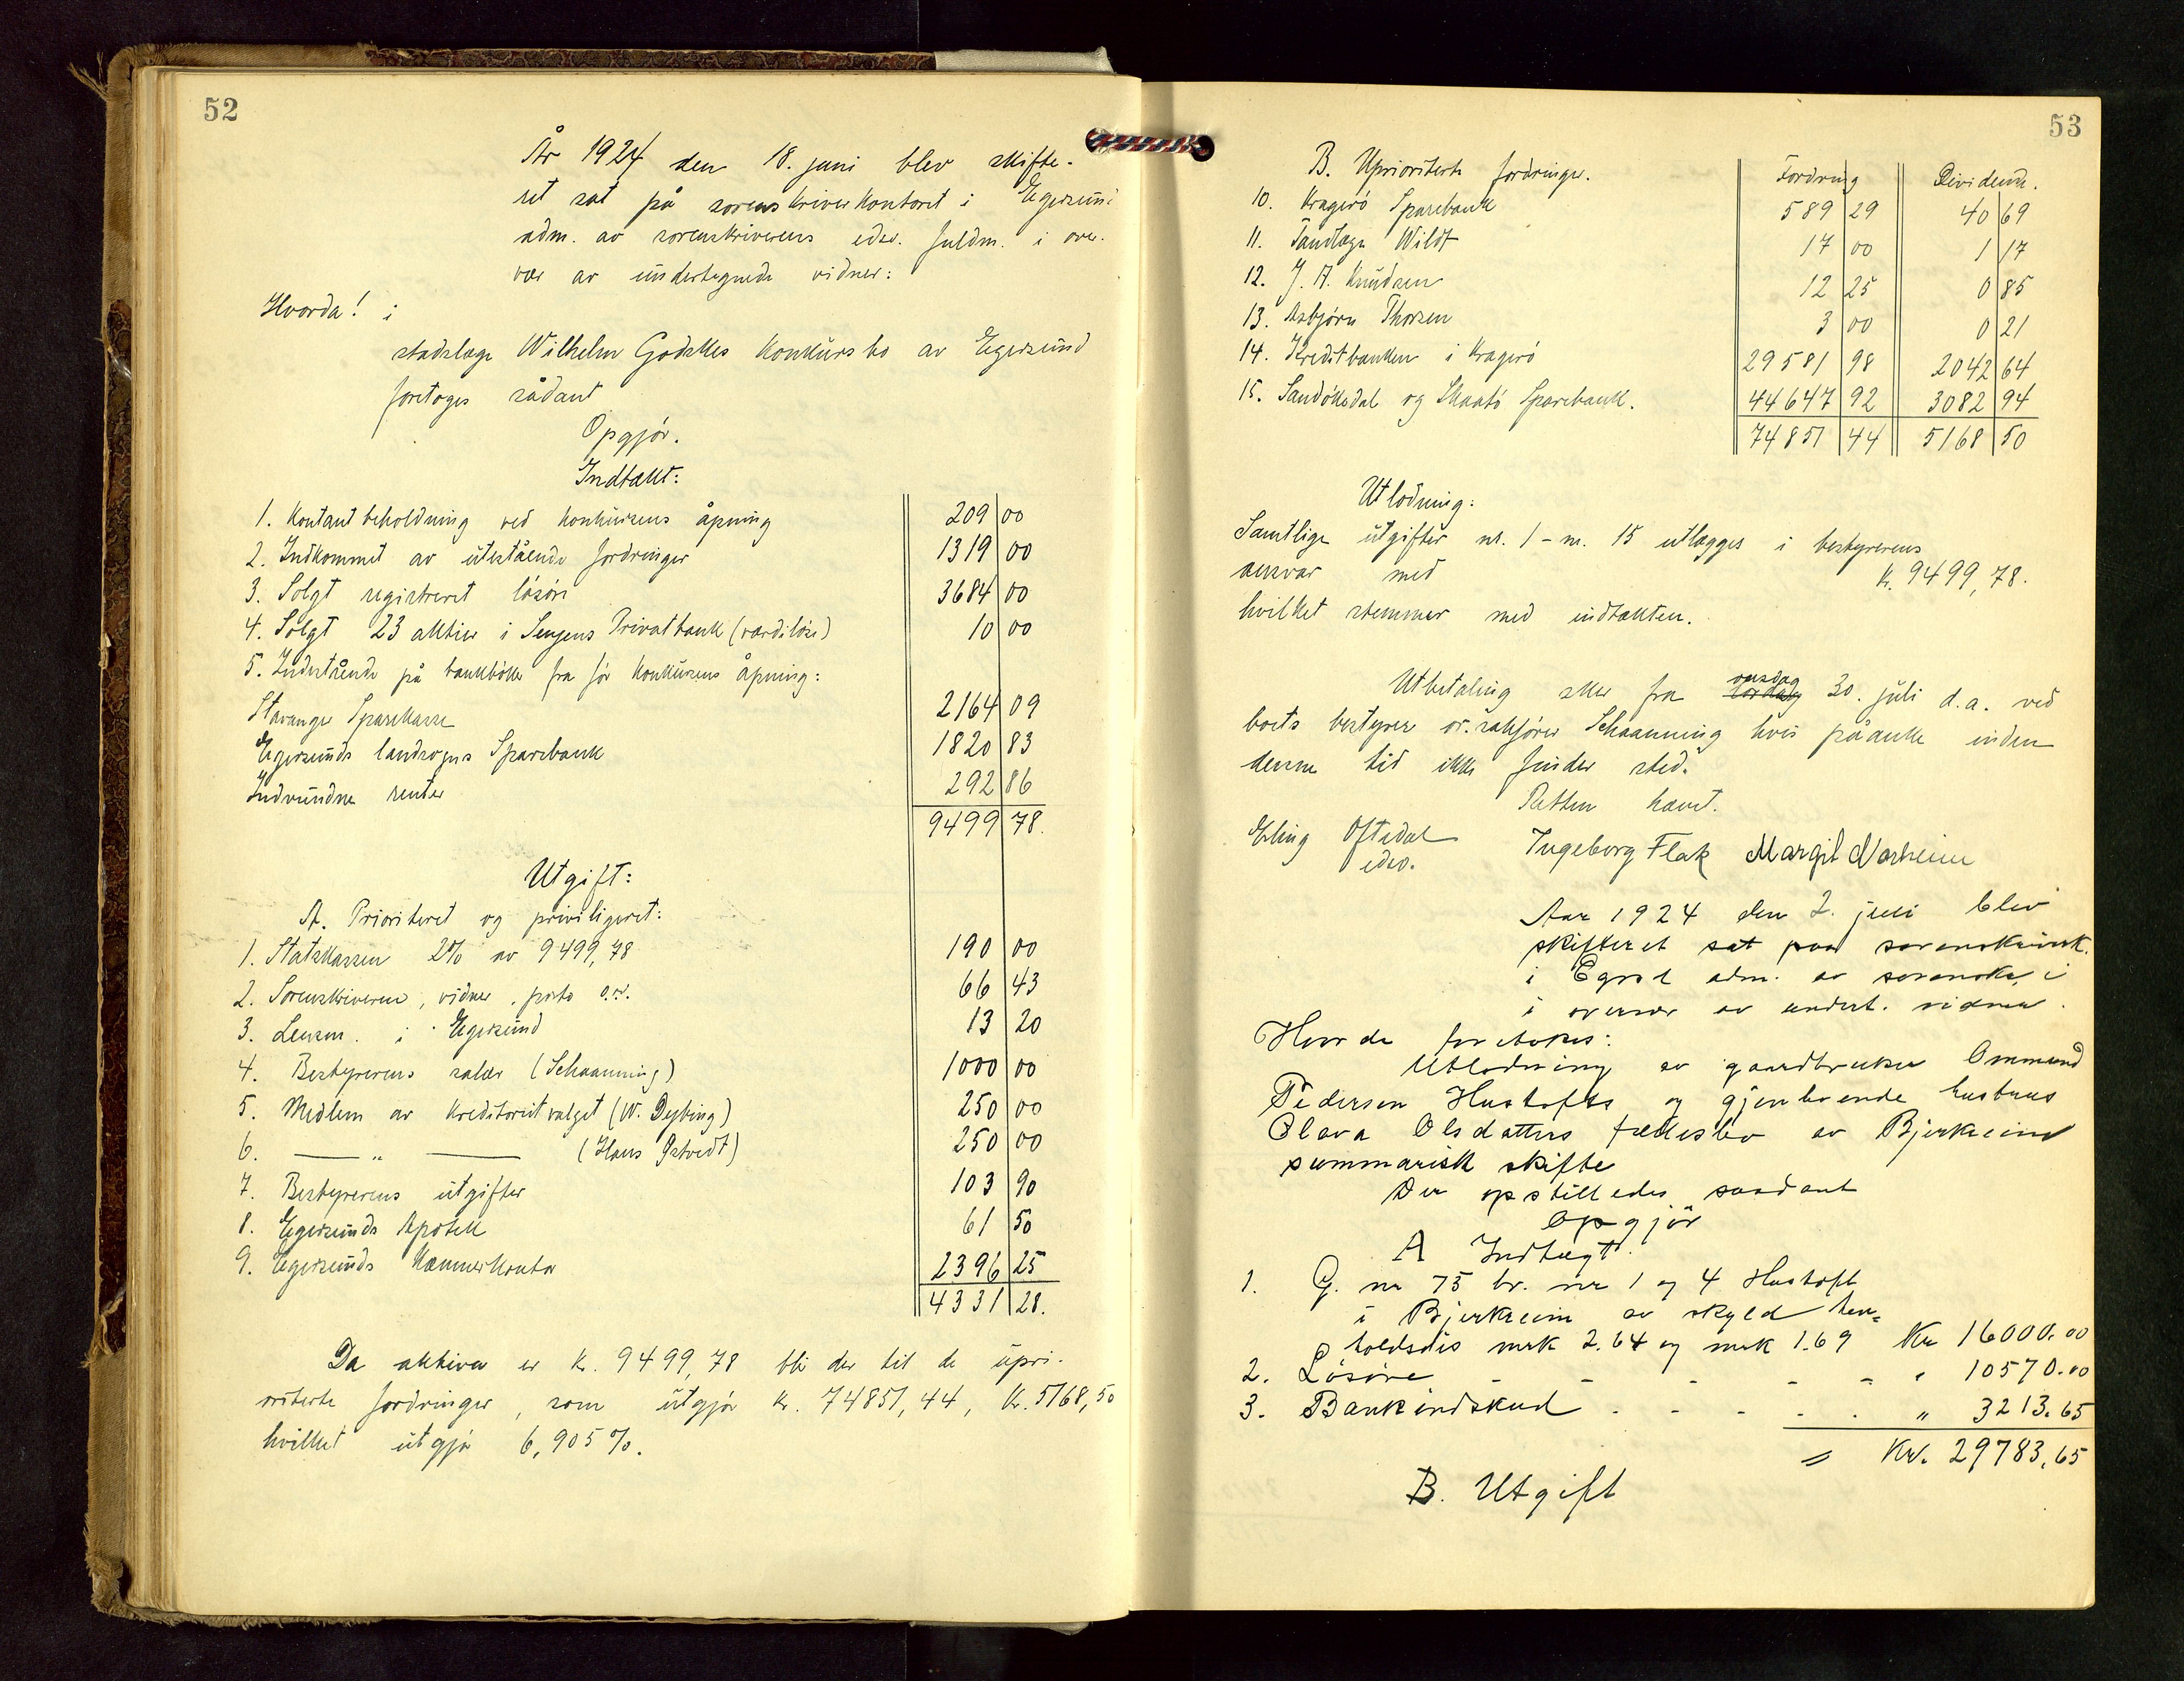 52
År 1924 den 18. juni blev skifte-
ret sat på sorenskriverkontoret i Egersund
adm. av sorenskriverens edsv. fuldm. i over-
vær av undertegnede vidner:
Hvorda! i
stadslæge Wilhelm Godskes konkursbo av Egersund
foretoges sådant
Opgjör.
Indtækt:
1. Kontantbeholdning ved konkursens åpning 209 00
2. Indkommet av utestående fordringer 1319 00
3. Solgt registreret lösöre 3684 00
4. Solgt 23 aktier i Privatbank (værdilöse) 10 00
5. Indestående på bankböker fra för konkursens åpning:
Stavanger Sparekasse 2164 09
Egersunds landsogns Sparebank 1820 83
Indvundne renter 292 86
9499 78.
Utgift:
A. Prioriteret og priviligeret:
1. Statskassen 2% av 9499,78 190 00
2. Sorenskriveren, vidner, porto o.s.v. 66 43
3. Lensm. i Egersund 13 20
4. Bestyrerens salær (Schaanning) 1000 00
5. Medlem av kreditorutvalget (W. Dybing) 250 00
6. — " — (Hans Østvedt) 250 00
7. Bestyrerens utgifter 103 90
8. Egersunds Apotek 61 50
9. Egersunds Kæmnerkontor 2396 25
4331 28.
Da aktiva er kr. 9499,78 bli der til de upri-
oriterte fordringer, som utgjör kr. 74851,44, kr. 5168,50
hvilket utgjör 6,905 %.
53
B. Uprioriterte fordringer. Fordring Dividende.
10. Kragerö Sparebank 589 29 40 69
11. Tandlæge Wildt 17 00 1 17
12. J. A. Knudsen 12 25 0 85
13. Asbjörn Thorsen 3 00 0 21
14. Kreditbanken i Kragerö 29581 98 2042 64
15. Sandökedal og Skaatö Sparebank. 44647 92 3082 94
74851 44 5168 50
Utlodning:
Samtlige utgifter nr. 1 - nr. 15 utlægges i bestyrerens
ansvar med k. 9499,78.
hvilket stemmer med indtækten.
Utbetaling sker fra lördag onsdag 30. juli d.a. ved
boets bestyrer or.sakförer Schaanning hvis påanke inden
denne tid ikke finder sted.
Retten hævet.
Elling Oftedal Ingeborg Flak Margit Norheim
edsv.
Aar 1924 den 2. juli blev
skifteret sat paa sorenskriverk.
i Egrsd adm. av sorenskr. i
i overvær av undert. vidner.
Hvorda foretokes:
Utlodning av gaardbruker Ommund
Pedersen Hustofts og gjenlevende hustrus
Olava Olsdatters fællesbo av Bjerkreim
summarisk skifte
Der opstilledes saadant
Opgjör
A Indtægt.
1. G. nr 75 br. nr 1 og 4 Hustoft
i Bjerkreim av skyld hen-
holdsvis mrk 2.64 og mrk 1.69 Kr 16000.00
2. Lösöre - - - - - " 10570.00
3. Bankindskud - - - - - " 3213.65
= Kr. 29783,65
B. Utgift